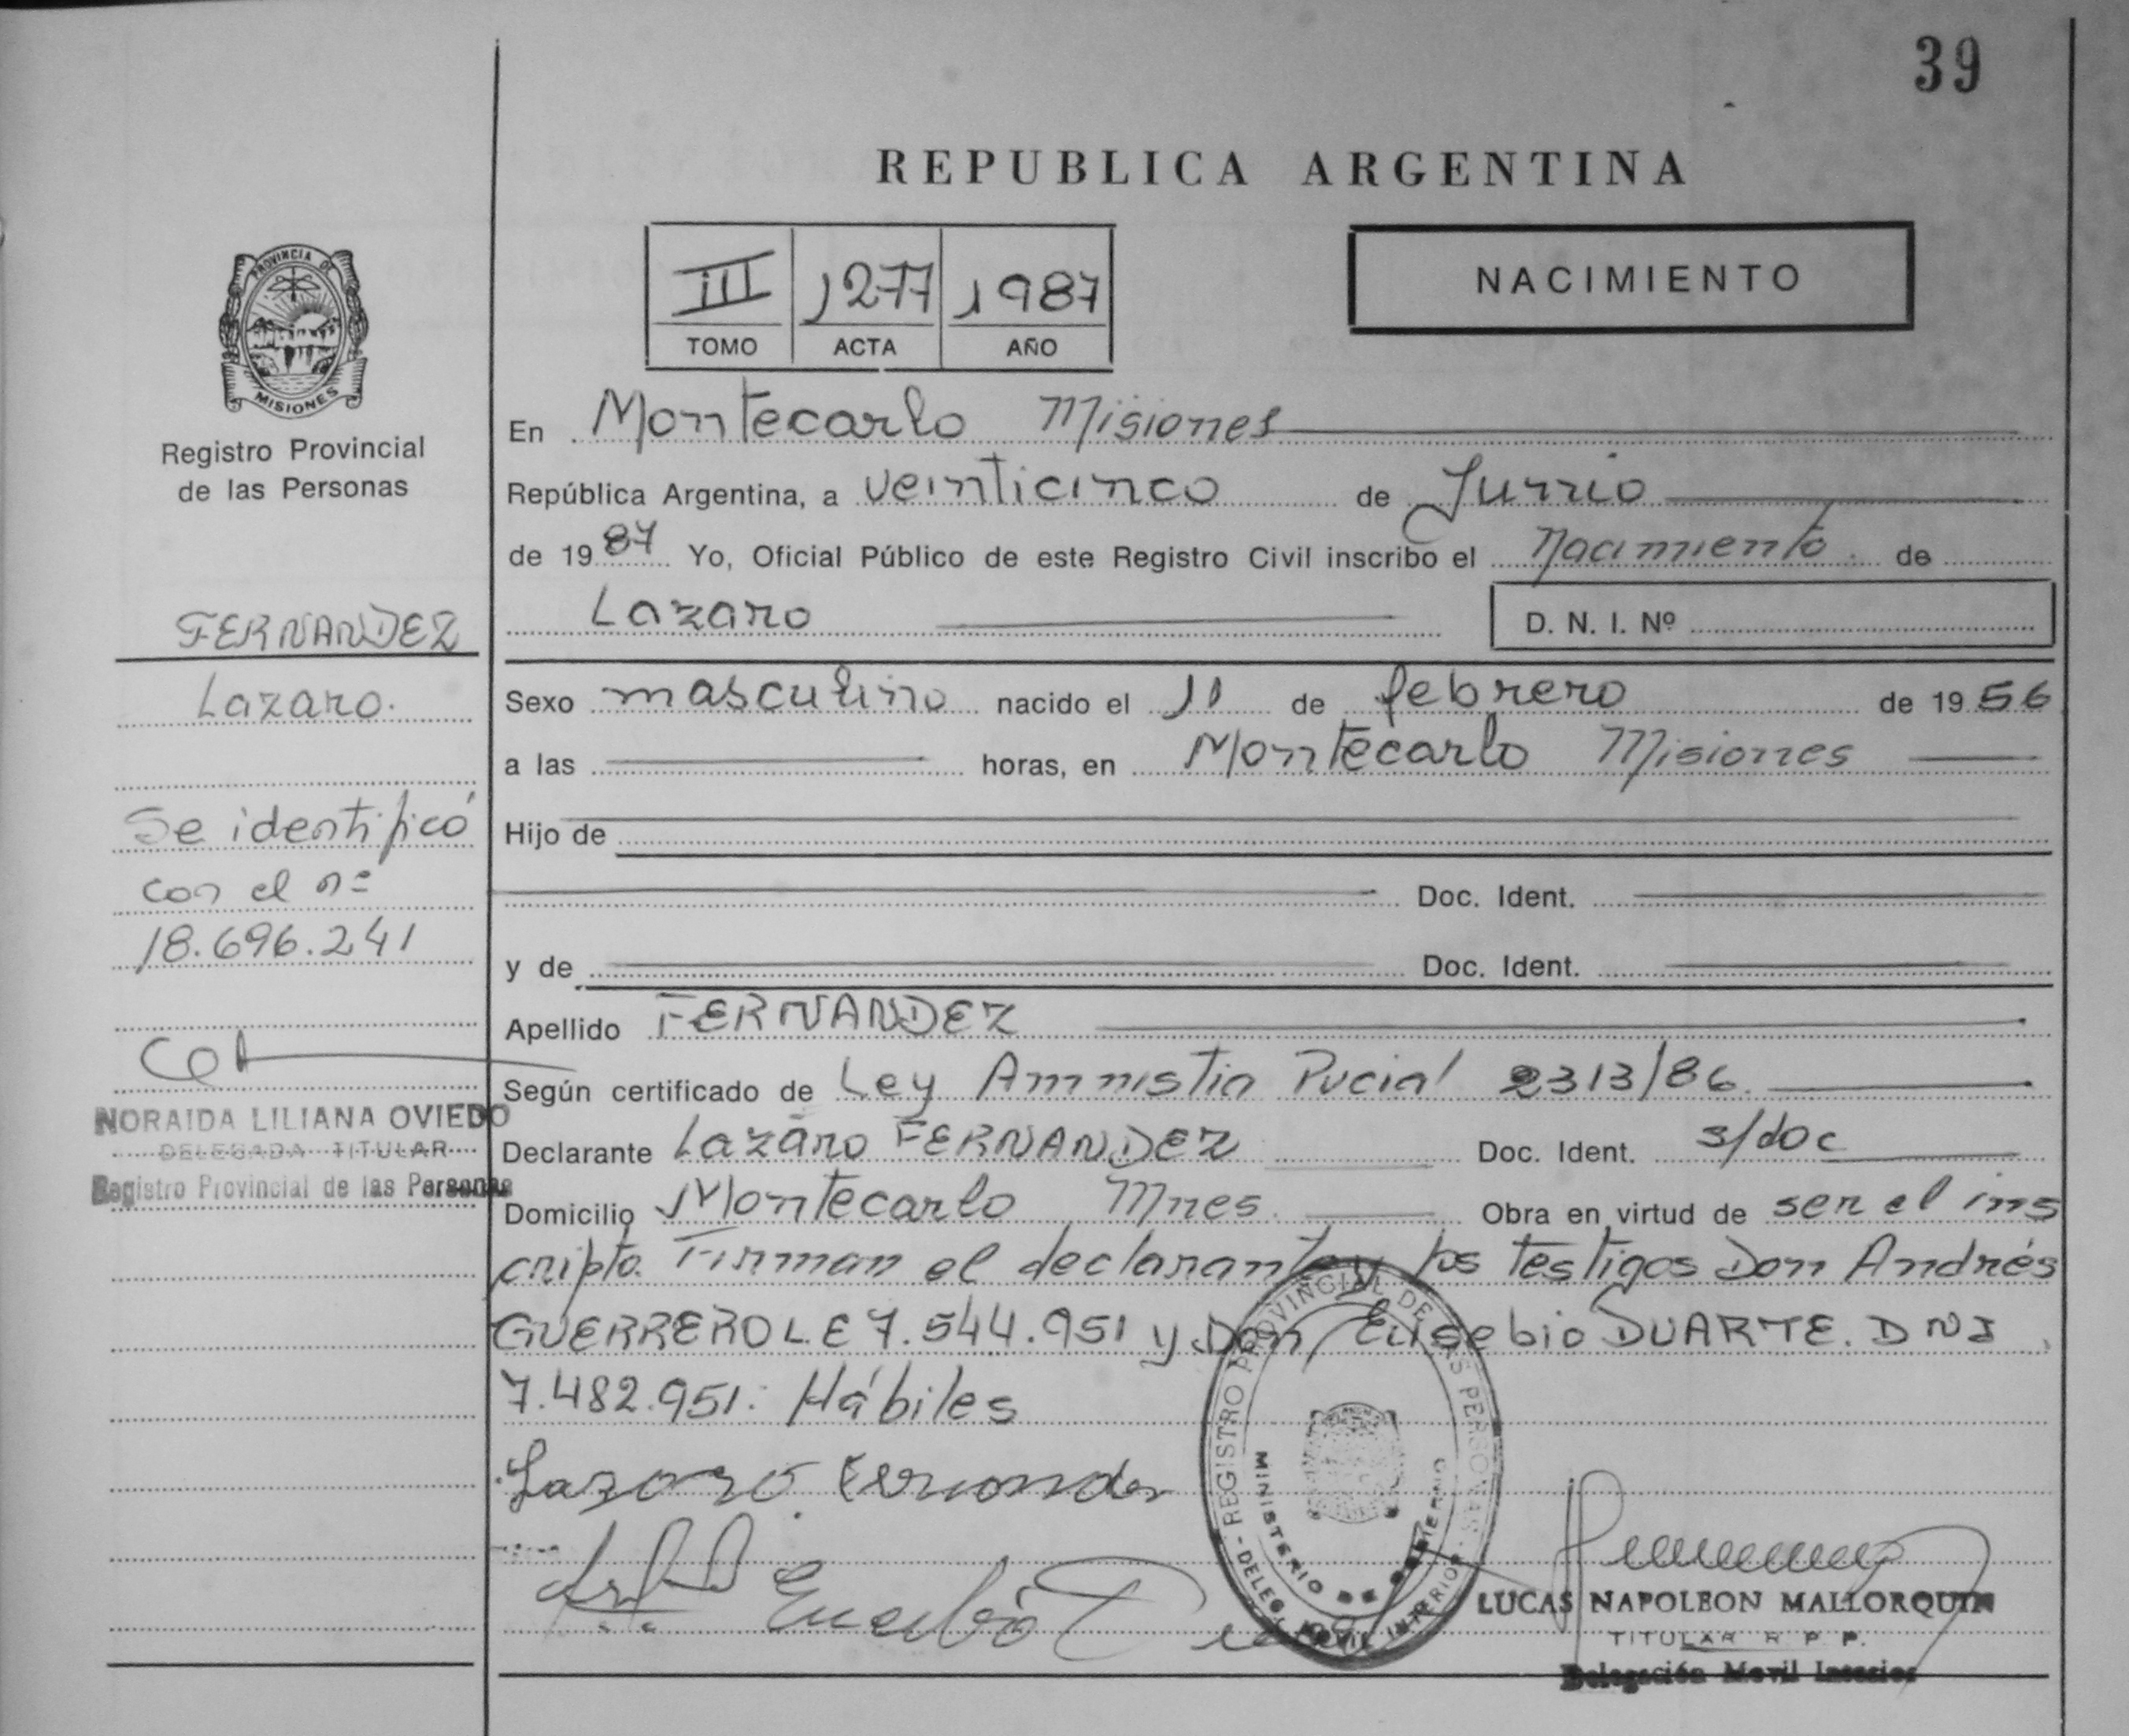 39
REPUBLICA ARGENTINA
III 1277 1987
TOMO ACTA AÑO
NACIMIENTO
PROVINCIA DE
MISIONES
Registro Provincial
de las Personas
FERNANDEZ
Lazaro.
Se identificó
con el nº
18.696.241
NORAIDA LILIANA OVIEDO
DELEGADA TITULAR
Registro Provincial de las Personas
En Montecarlo Misiones
República Argentina, a veinticinco de Junio
de 19 87 Yo, Oficial Público de este Registro Civil inscribo el Nacimiento de
Lazaro D. N. I. Nº
Sexo masculino nacido el 11 de febrero de 19 56
a las horas, en Montecarlo Misiones
Hijo de
Doc. Ident.
y de Doc. Ident.
Apellido FERNANDEZ
Según certificado de Ley Amnistia Pvcial 2313/86.
Declarante Lazaro FERNANDEZ Doc. Ident. s/doc
Domicilio Montecarlo Mnes. Obra en virtud de ser el ins
cripto. Firman el declarante y los testigos Don Andrés
GUERRERO L.E 7.544.951 y Don Eusebio DUARTE. DNI
7.482.951. Hábiles
Lazaro Fernandez
Eusebio
REGISTRO PROVINCIAL DE LAS PERSONAS
MINISTERIO DE GOBIERNO
DELEG. MOVIL INTERIOR
LUCAS NAPOLEON MALLORQUIN
TITULAR R. P. P.
Delegación Movil Interior